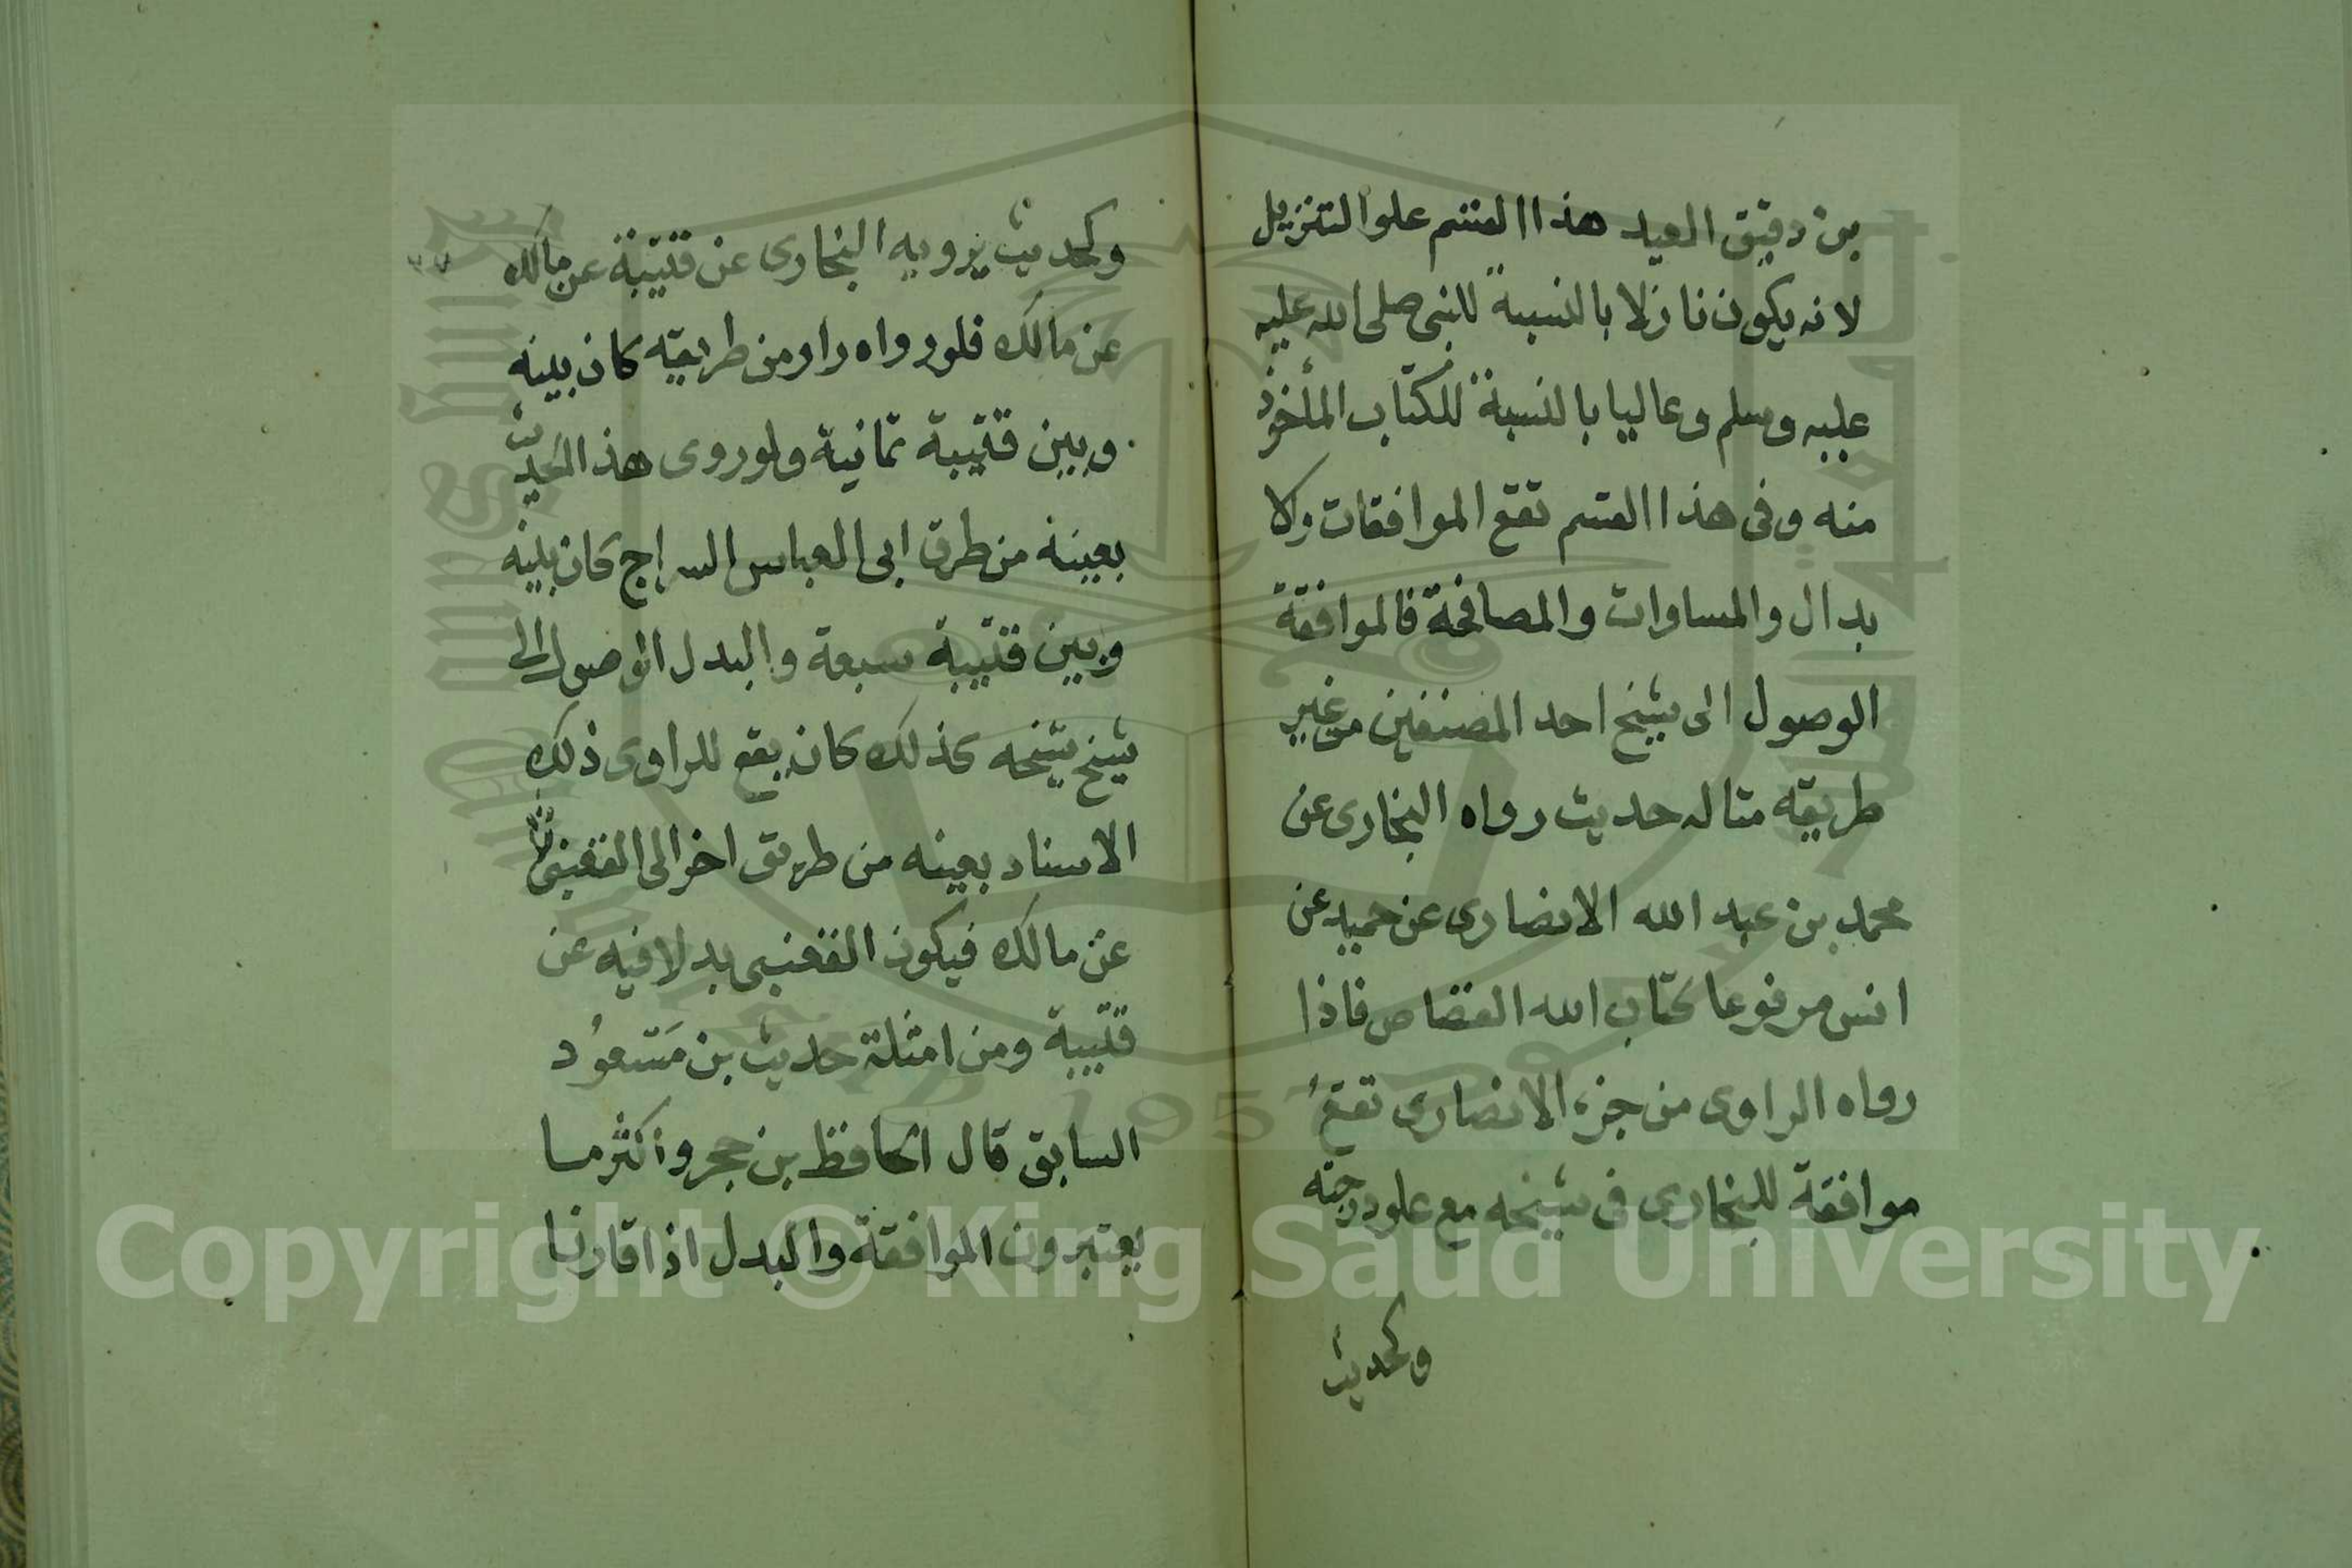 بن دقيق العيد هذا القسم علو التنزيل
لانه يكون نازلا بالنسبة للنبى صلى الله عليه
عليه وسلم وعاليا بالنسبة للكتاب المأخوذ
منه وفى هذا القسم تقع الموافقات والا
بدال والمساوات والمصافحة فالموافقة
الوصول الى شيخ احد المصنفين من غير
طريقه مثاله حديث رواه البخارى عن
محمد بن عبد الله الانصارى عن حميد عن
انس مرفوعا كتاب الله القصاص فاذا
رواه الراوى من جزء الانصارى تقع
موافقة للبخارى فى شيخه مع علو درجته
وكحديث
وكحديث يرويه البخارى عن قتيبة عن مالك
عن مالك فلو رواه راو من طريقه كان بينه
وبين قتيبة ثمانية ولو روى هذ الحديث
بعينه من طرق ابى العباس السراج كان بينه
وبين قتيبة سبعة والبدل الوصول الى
شيخ شيخه كذلك كان يقع للراوى ذلك
الاسناد بعينه من طريق اخر الى القعنبى
عن مالك فيكون القعنبى بدلا فيه عن
قتيبة ومن امثلة حديث بن مسعود
السابق قال الحافظ بن حجر واكثر مسا
يعتبرون الموافقة والبدل اذا قارنا
Copyright © King Saud University
1957